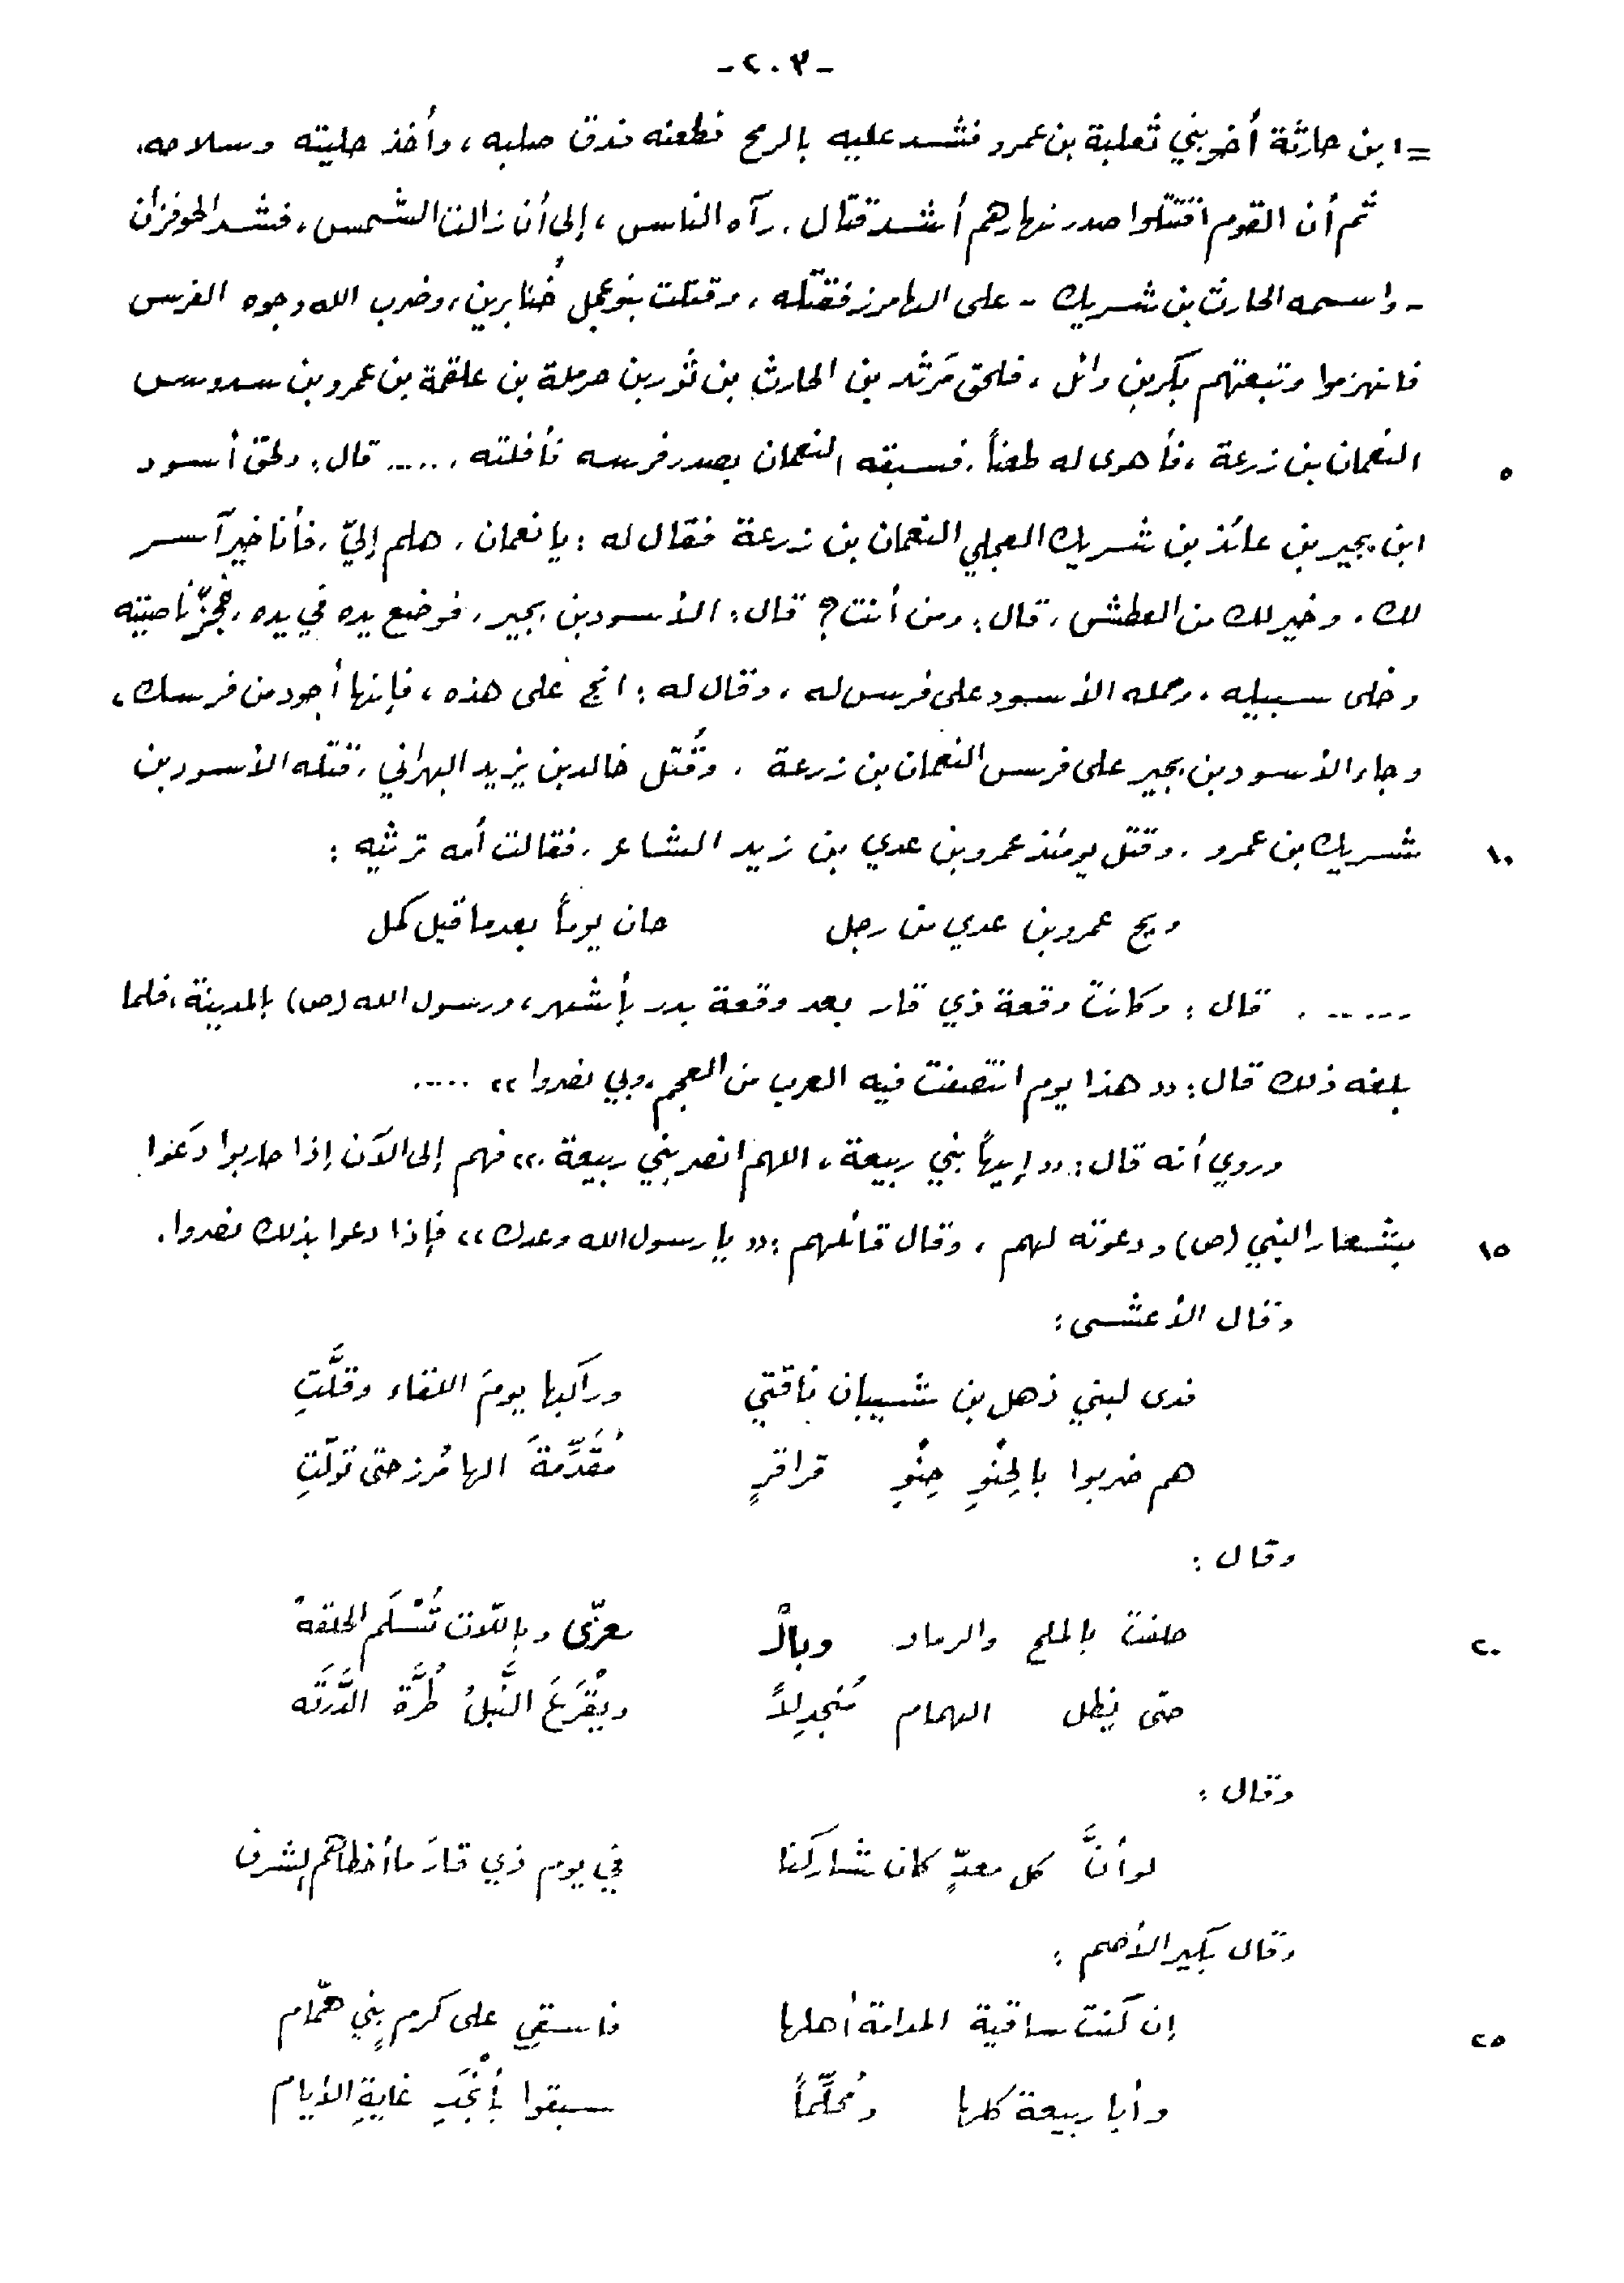 -٢٠٣-
= ابن حارثة أخو بني ثعلبة بن عمرو فشد عليه بالرمح فطعنه فدق صلبه، وأخذ حليته وسلاحه.
ثم أن القوم اقتتلوا صدر نهارهم أشد قتال. رآه الناس، إلى أن زالت الشمس، فشد الحوفزان
- واسمه الحارث بن شريك - على الهامرز فقتله، وقتلت بنو عجل خُنابرين، وضرب الله وجوه الفرس
فانهزموا وتبعتهم بكر بن وائل، فلحق مَرثد بن الحارث بن ثور بن حرملة بن علقمة بن عمرو بن سدوس
٥ النعمان بن زرعة، فأهوى له طعناً. فسبقه النعمان بصدر فرسه فأفلته ...... قال: ولحق أسود
ابن بجير بن عائذ بن شريك العجلي النعمان بن زرعة فقال له: يا نعمان، هلم إليّ، فأنا خير آسر
لك، وخير لك من العطش، قال: ومن أنت؟ قال: الأسود بن بجير، فوضع يده في يده، فجزّ ناصيته
وخلى سبيله، وحمله الأسود على فرس له، وقال له: انج على هذه، فإنها أجود من فرسك،
وجاء الأسود بن بجير على فرس النعمان بن زرعة. وقُتل خالد بن يزيد البهراني، قتله الأسود بن
١٠ شريك بن عمرو. وقتل يومئذ عمرو بن عدي بن زيد الشاعر. فقالت أمه ترثيه:
ويح عمرو بن عدي من رجل حان يوماً بعدما قيل كمل
....... قال: وكانت وقعة ذي قار بعد وقعة بدر بأشهر، ورسول الله (ص) بالمدينة، فلما
بلغه ذلك قال: « هذا يوم انتصفت فيه العرب من العجم، وبي نصروا » .....
وروي أنه قال: « إيهاً بني ربيعة، اللهم انصر بني ربيعة. » فهم إلى الآن إذا حاربوا دَعَوا
١٥ بشعار النبي (ص) ودعوته لهم، وقال قائلهم: « يا رسول الله وعدك » فإذا دعوا بذلك نصروا.
وقال الأعشى:
فدى لبني ذهل بن شيبان ناقتي وراكبها يومَ اللقاء وقلَّتِ
هم ضربوا بالحِنْوِ حِنْوِ قراقرٍ مُقَدِّمَةَ الهامُرز حتى تولّتِ
وقال:
٢٠ حلفت بالملح والرماد وبالْـ ـعزّى وباللّات تُسْلَم الحلقهْ
حتى يظل الهمام مُنجدِلاً ويَقْرَعَ النَّبلُ طُرَّةَ الدَّرَقَه
وقال:
لو أنَّ كل معدٍّ كان شاركَنا في يوم ذي قارَ ما أخطاهم الشرف
وقال بكير الأصم:
٢٥ إن كنتَ ساقية المدامة أهلها فاسقي على كرم بني همّام
وأبا ربيعة كلها ومُحلِّماً سبقوا بأنْجَبِ غايةِ الأيام